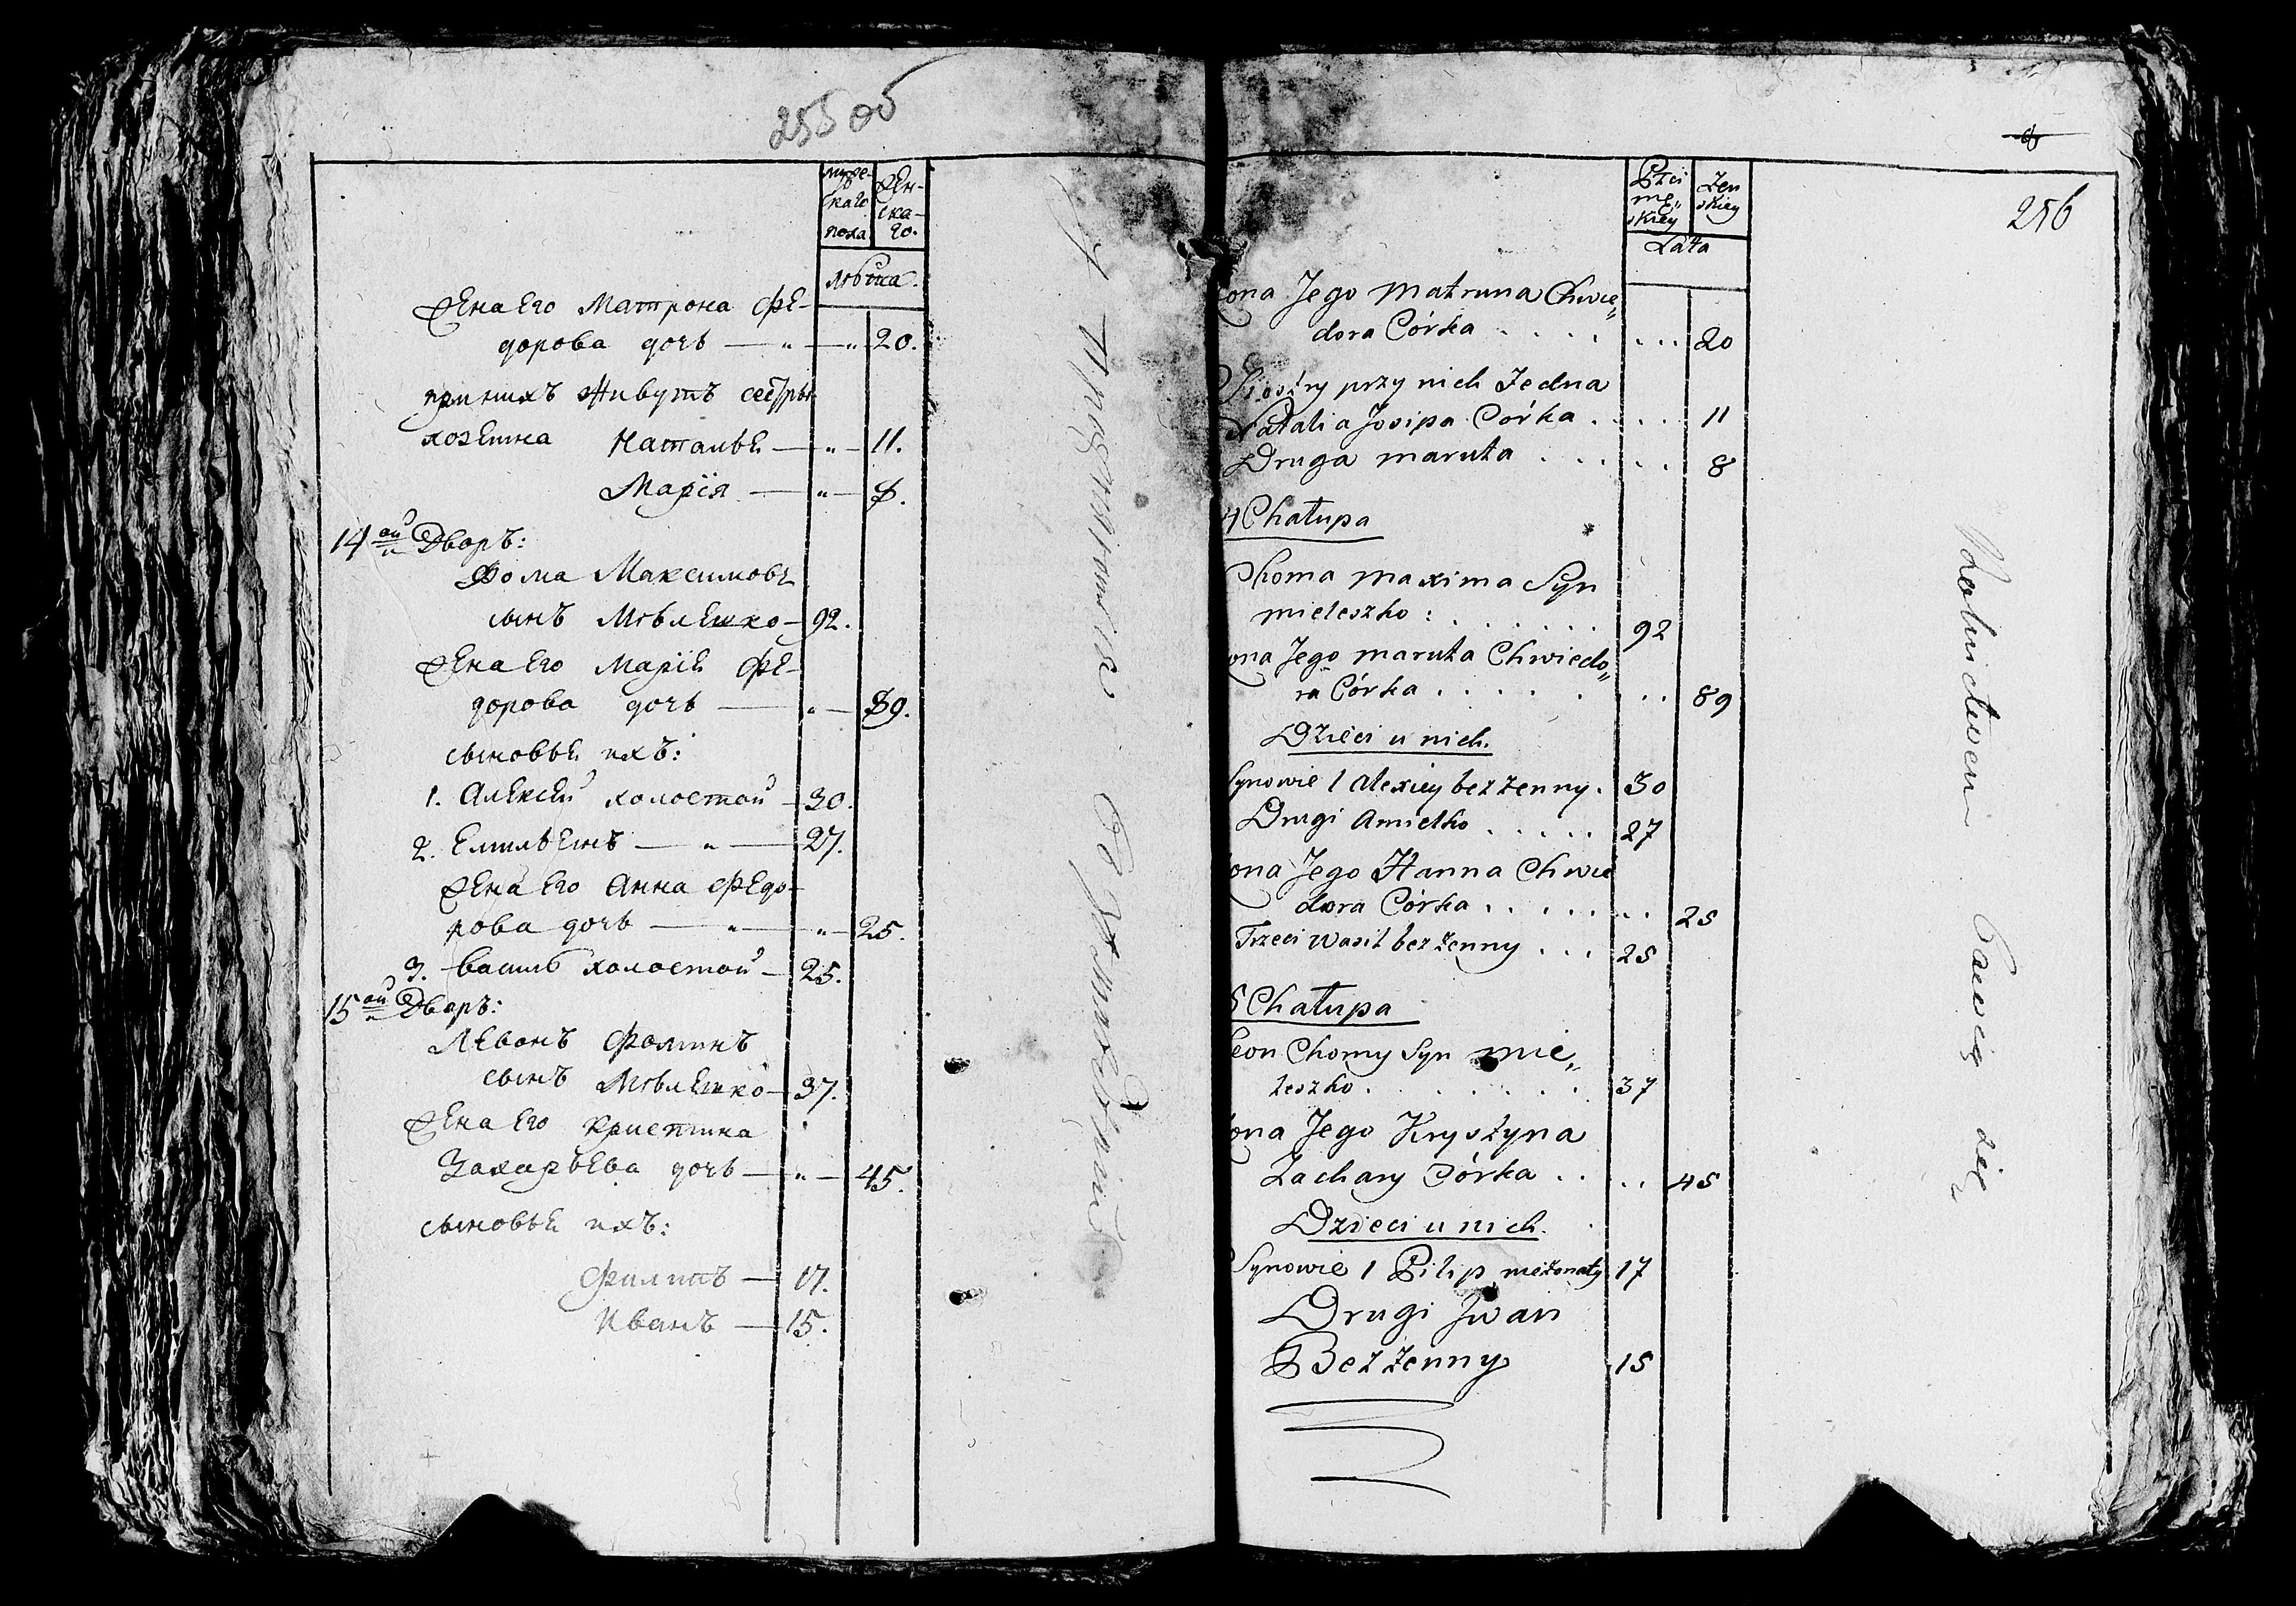 255 об
муже-
скаго
пола
жен-
ска-
го.
лѣта.
Жена Его Матрона Фе-
дорова дочь — „ — „ 20.
при нихъ живутъ сестры
хозяина Наталья — „ — 11.
Мария — „ — 8.
14ой Дворъ:
Фома Максимовъ
сынъ Мѣлешко — 92.
Жена Его Марія Фе-
дорова дочь — „ — 89.
сыновья ихъ:
1. Алексей холостой — 30.
2. Емельянъ — „ — 27.
Жена Его Анна Федо-
рова дочь — „ — „ — 25.
3. Василь холостой — 25.
15ой Дворъ:
Леванъ Фоминъ
сынъ Мѣлешко — 37.
Жена Его Кристина
Захарьева дочь — „ — 45.
сыновья ихъ:
Филипъ — 17.
Иванъ — 15.
256
Płci
mę„
skiey
Żen
skiey
Lata
ona Jego Matruna Chwie„
dora Córka . . . . . . . 20
Siostry przy nich Jedna
Natalia Josipa Córka . . . . 11
Druga Maruta . . . . . 8
4 Chałupa
Choma Maxima Syn
Mieleszko : . . . . . . 92
ona Jego Maruta Chwiedo„
ra Córka . . . . . . . 89
Dzieci u nich.
Synowie 1 Alexiey bezżenny . 30
Drugi Amielko . . . . . 27
ona Jego Hanna Chwie
dora Córka . . . . . . . 25
Trzeci Wasil bezżenny . . . 25
5 Chałupa
Leon Chomy Syn Mie„
leszko . . . . . . 37
ona Jego Krystyna
Zachary Córka . . . . 45
Dzieci u nich.
Synowie 1 Pilip nieżonaty 17
Drugi Iwan
Bezżenny 15